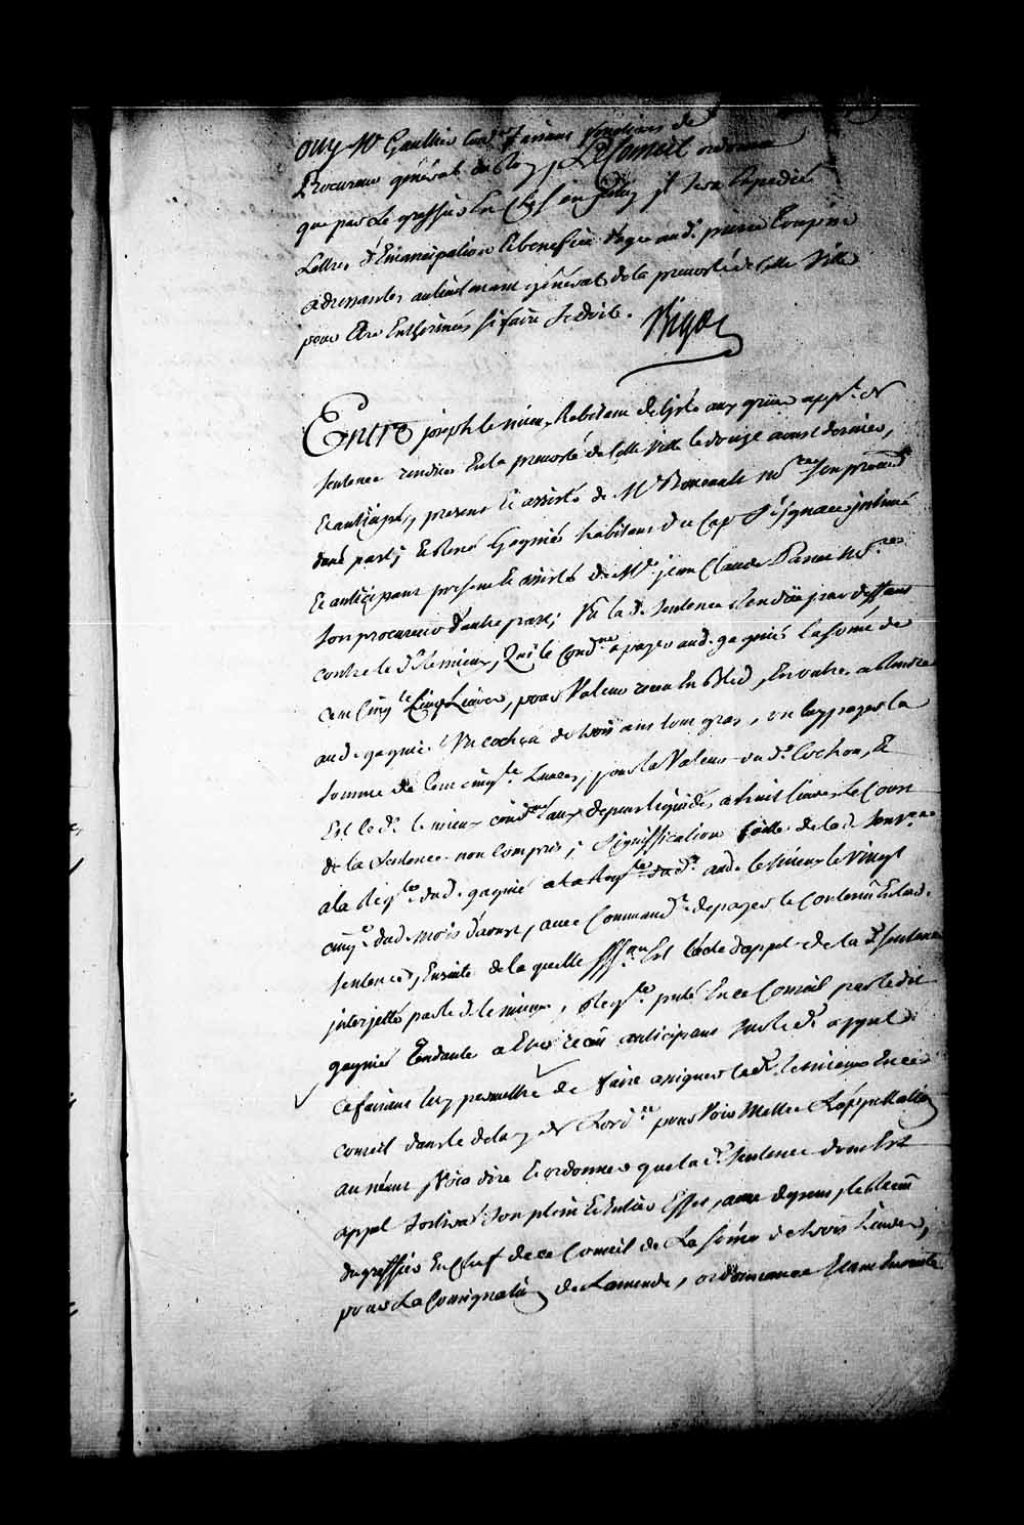 ouy Mr Gaultier Cons.er faisant fonctions de
Procureur général du Roy, Le Conseil ordonne
que par le greffier en Chef en Iceluy il sera Expedié
Lettres d'Emancipation et benefice d'age aud. pierre Toupin
adressantes au lieutenant général de la prevosté de cette Ville
pour être Enthérinées si faire se doit.
Bigot
Entre joseph le mieux, habitant de l'isle aux grues appt. de
sentence rendüe En la prevosté de cette Ville le douze aoust dernier,
Et anticipé, present Et assisté de Me son procureur
dune part; Et René Gagnié habitant du Cap St ignace jntimé
Et anticipant present Et assisté de Me jean Claude Panet No.re
son procureur d'autre part; Vû la de. sentence Rendüe par deffaut
contre le d. le mieux, Qui le Cond.ne a payer aud. gagnié la somé de
Cent Cinq.te Cinq Livres, pour Valeur receu En Bled, En outre a Rendre
aud. gagnié Un cochon de trois ans tout gras, ou luy payer la
somme de Cent cinq.te Livres, pour la Valeur dud. Cochon, Et
Est le d. le mieux cond.né aux depens liquidés a huit livres le Cout
de la sentence non compris; signiffication faitte de lad. sent.ce
a la Req.te dud. gagnié aud. le mieux le vingt
cinq dud. mois d'aoust, avec Command.t de payer le Contenu En lad.
sentence, Ensuite de la quelle Est l'acte d'appel de la de. sentence
jnterjetté par le d. le mieux, Req.te pnté En ce Conseil par le dit
gagnié Tendante a Etre receu anticipant sur le d. appel
ce faisant luy permettre de faire assigner le d. le mieux En ce
conseil dans le delay de L'ord.ce pour Voir Mettre L'appellation
au néant, Voir dire Et ordonner que la de. sentence dont Est
appel Sortira Son plein Et Entier Effet, avec depens,
du greffier En Chef de ce Conseil de La somé de trois Livres,
pour La Consignation de Lamende, ordonnance Etant Ensuite